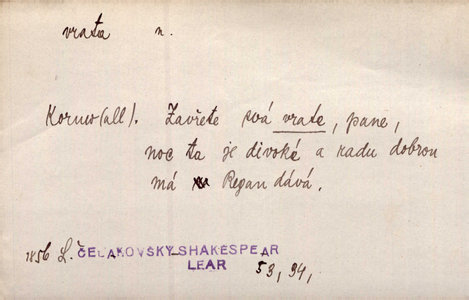 vrata n.
Kornw(all). Zavřete svá vrata, pane,
noc ta je divoké a radu dobrou
má Regan dává.
1856 L. ČELAKOVSKÝ-SHAKESPEAR
LEAR 53, 94,